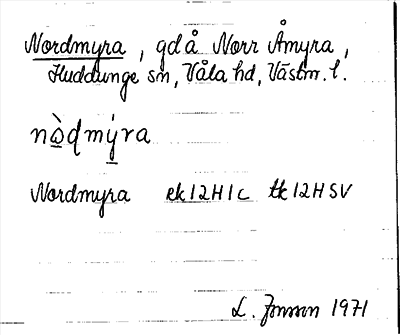 Nordmyra, gd å Norr Åmyra,
Huddunge sn, Våla hd, Västm. l.
nò̲ɖmý̲ra
Nordmyra ek 12H1c tk 12H SV
L. Jonsson 1971